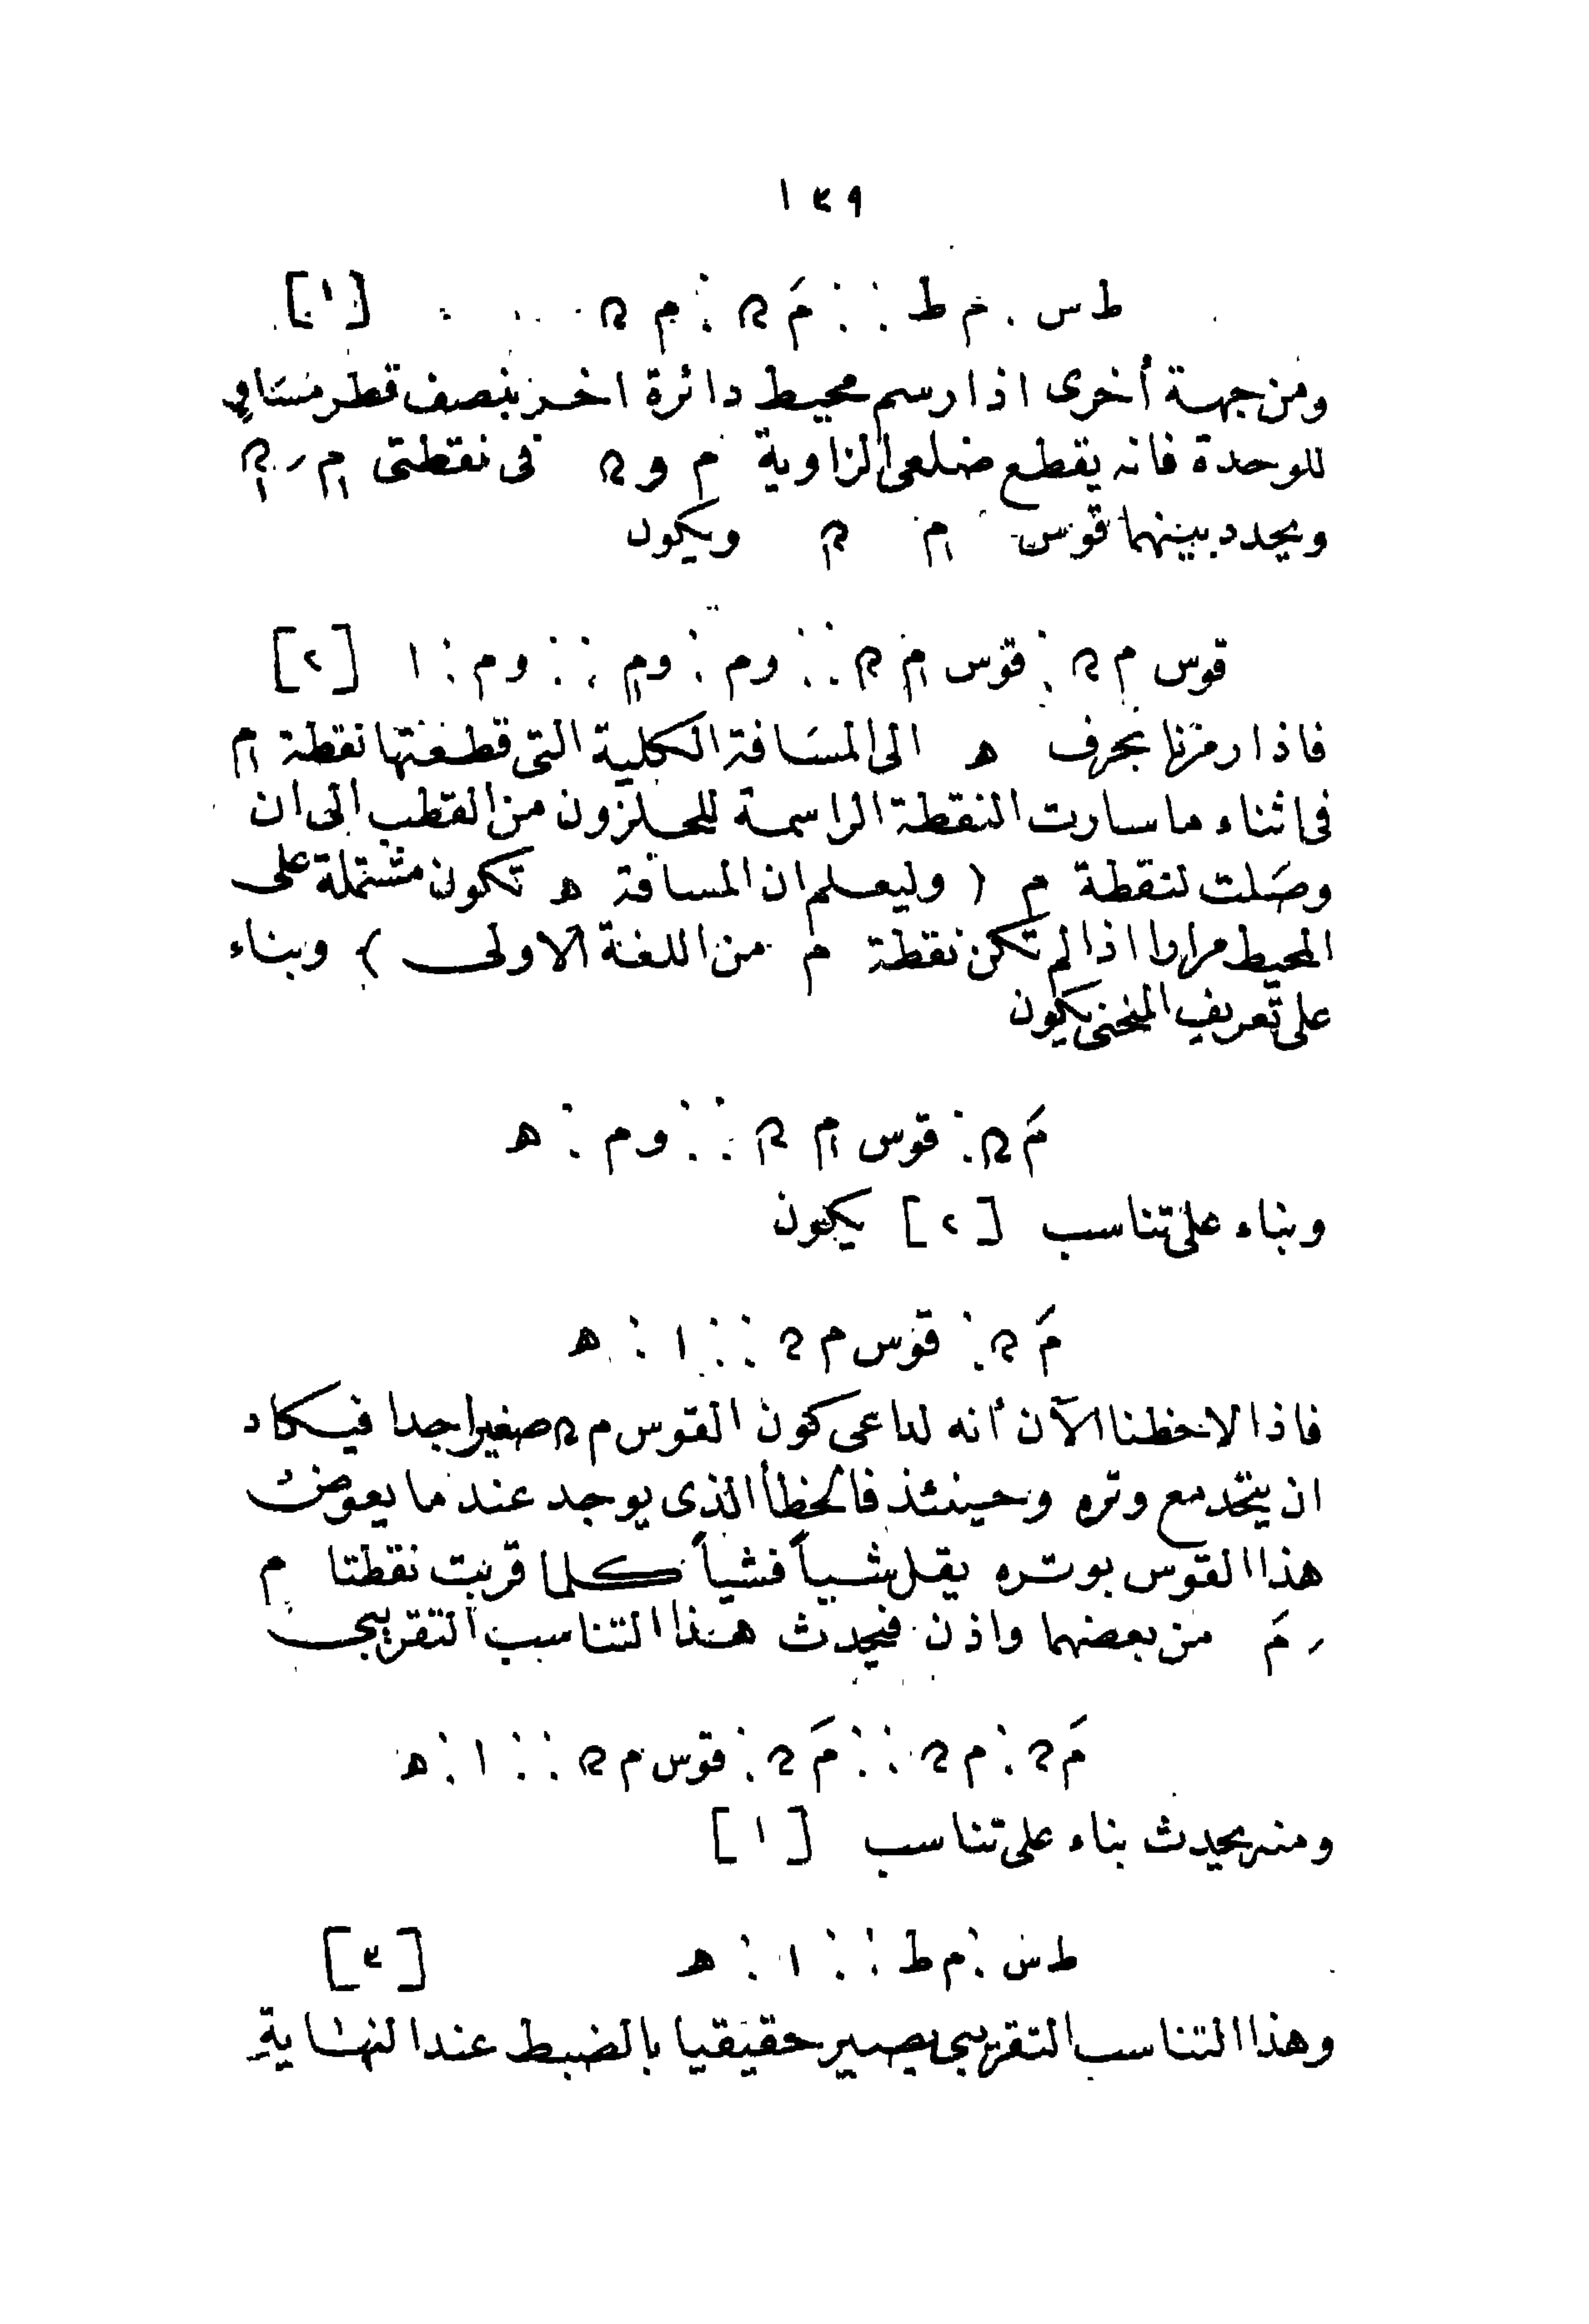 ١٣٩
ط س : م ط :: مَ ﮪ : م ﮪ . . . . [١]
ومن جهة أخرى اذا رسم محيط دائرة اخر بنصف قطر مساو
للوحدة فانه يقطع ضلعى الزاوية م و ﮪ فى نقطتى م١ ر ﮪ١
ويحدد بينهما قوس م١ ﮪ١ ويكون
قوس م ﮪ : قوس م١ ﮪ١ :: وم : وم١ :: وم : ١ [٢]
فاذا رمزنا بحرف ه الى المسافة الكلية التى قطعتها نقطة م١
فى اثناء ما سارت النقطة الراسمة للحلزون من القطب الى ان
وصلت لنقطة م ( وليعلم ان المسافة ه تكون مشتملة على
المحيط مرارا اذا لم تكن نقطة م من اللفة الاولى ) وبناء
على تعريف المنحنى يكون
مَ ﮪ : قوس م١ ﮪ١ :: وم : ه
وبناء على تناسب [٢] يكون
مَ ﮪ : قوس م ﮪ :: ١ : ه
فاذا لاحظنا الآن أنه لداعى كون القوس م ﮪ صغيرا جدا فيكاد
ان يتحد مع وتره وحينئذ فالخطأ الذى يوجد عند ما يعوض
هذا القوس بوتره يقل شيأ فشيأ كلما قربت نقطتا م
ر مَ من بعضهما واذن فيحدث هذا التناسب التقريبى
مَ ﮪ : م ﮪ :: مَ ﮪ : قوس م ﮪ :: ١ : ه
ومنه يحدث بناء على تناسب [١]
ط س : م ط :: ١ : ه [٣]
وهذا التناسب التقريبى يصير حقيقيا بالضبط عند النهاية